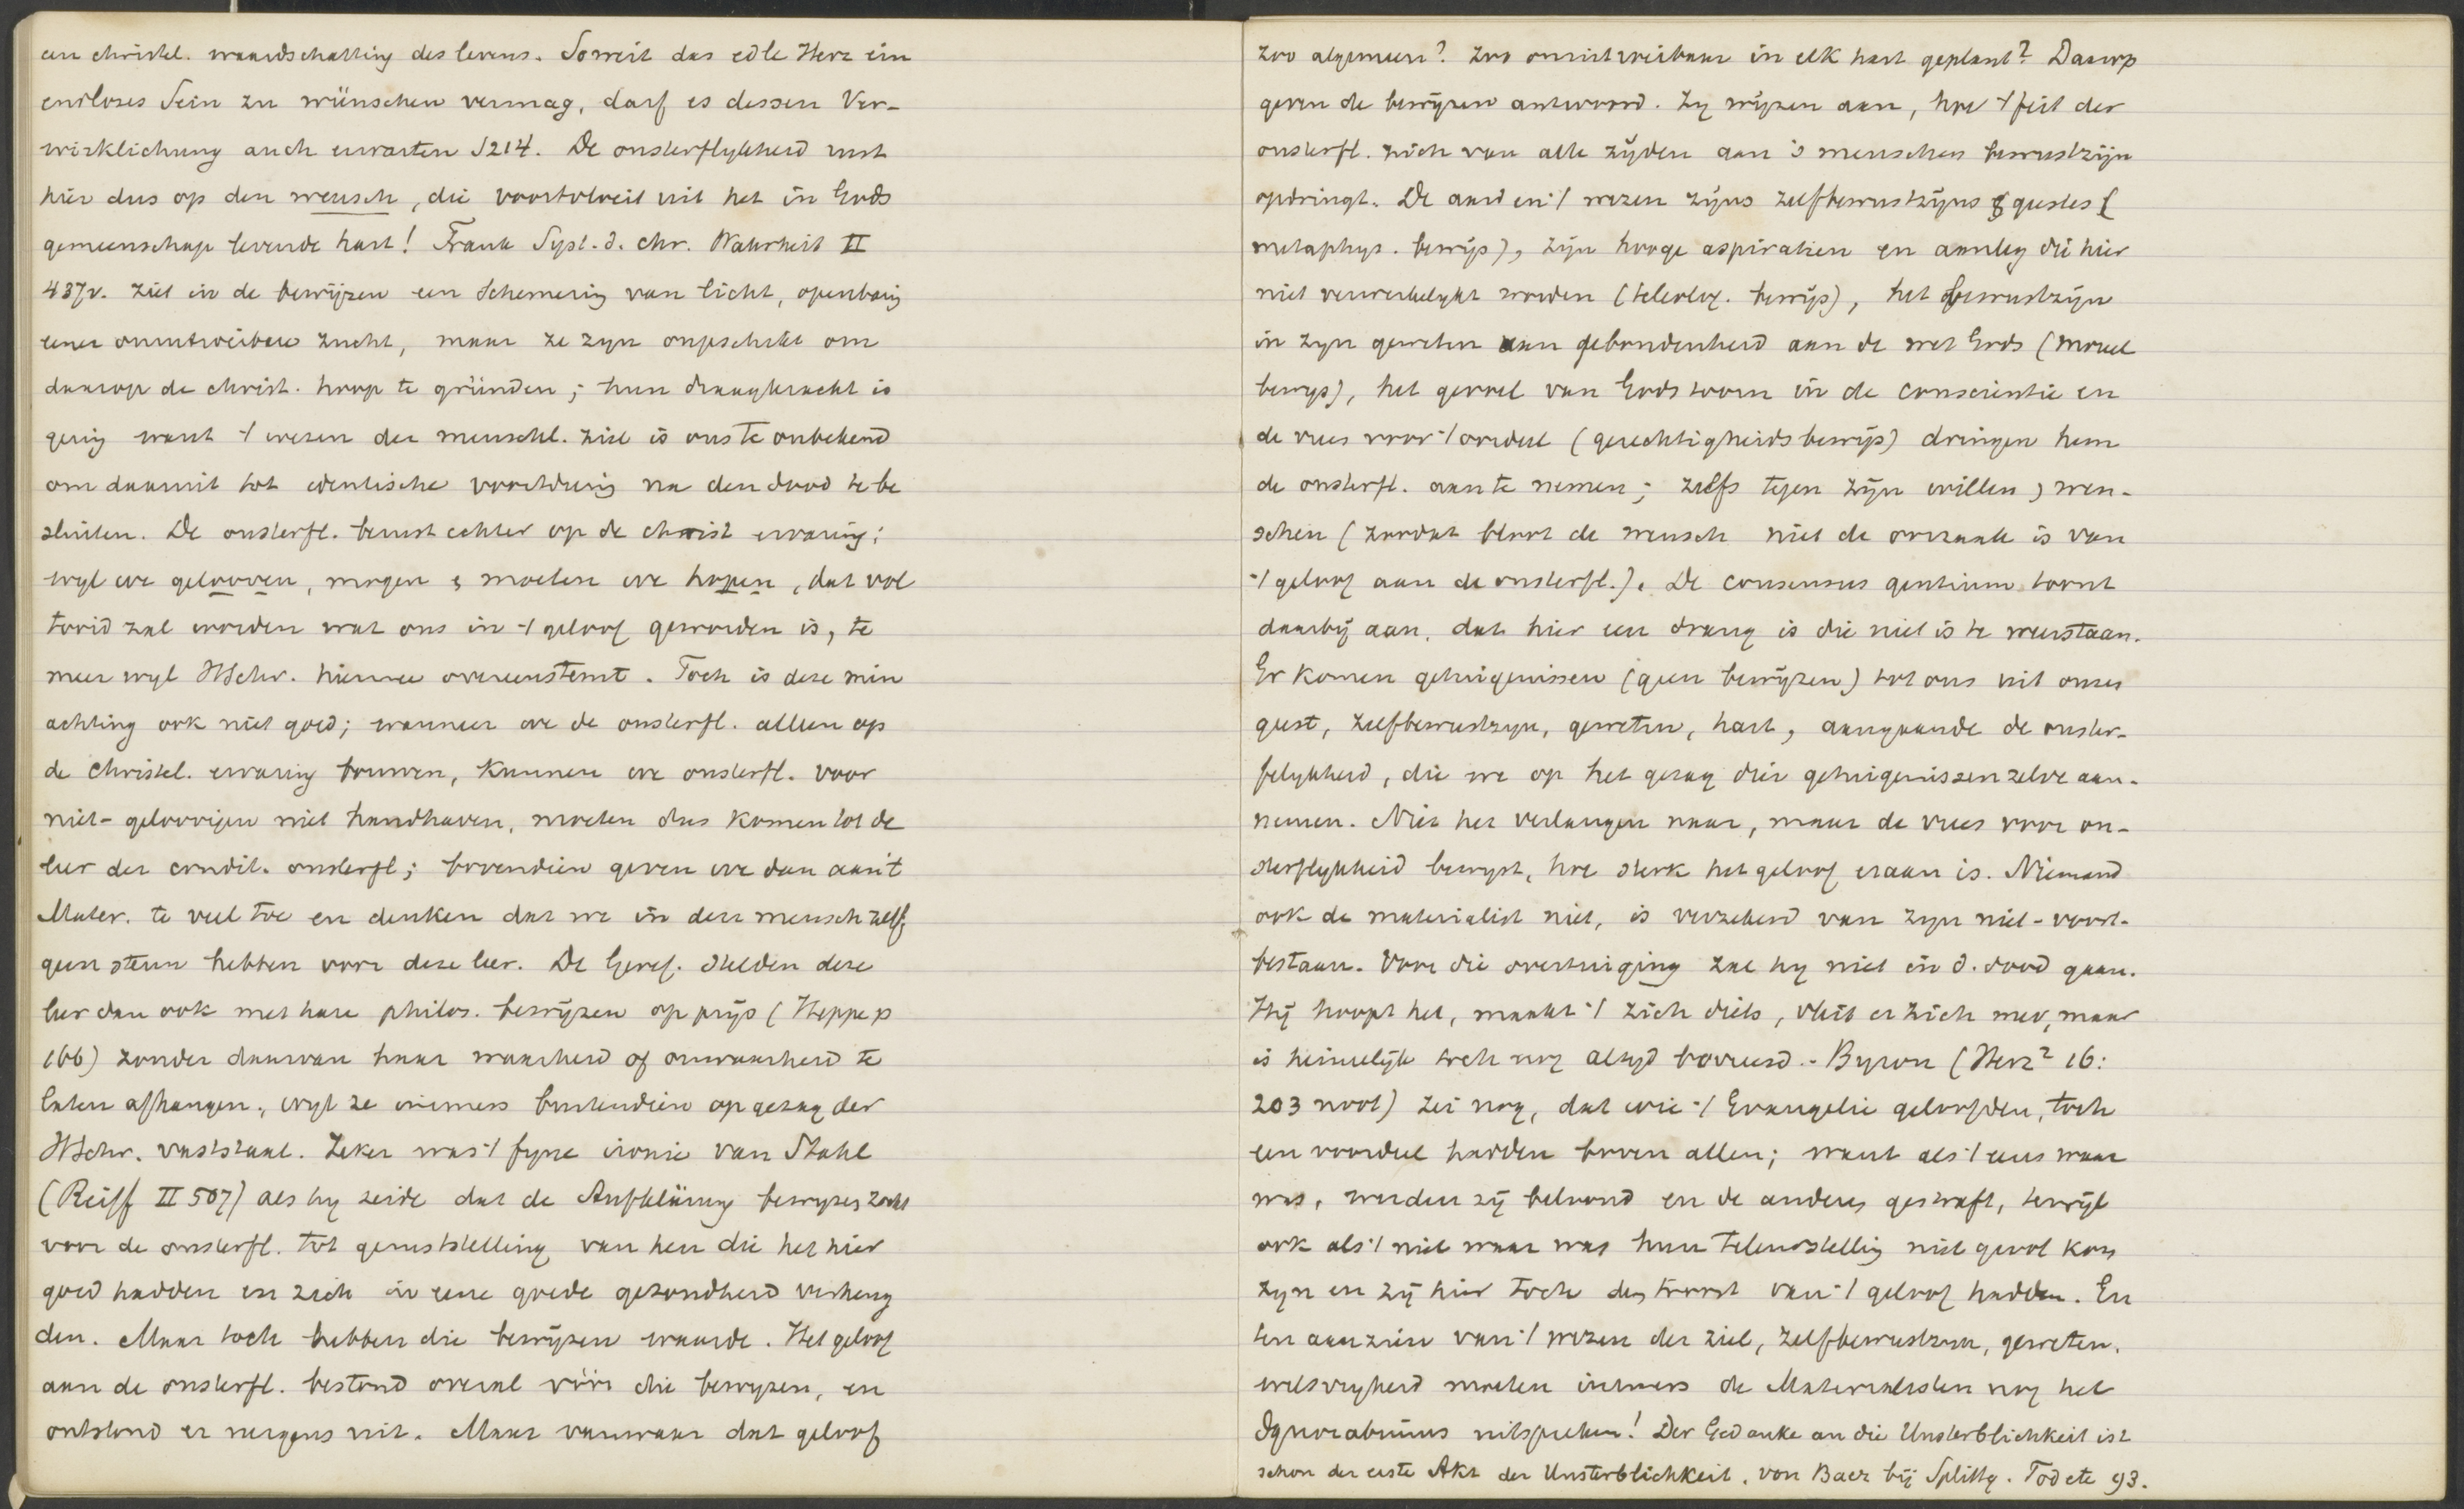 een christel. waardschatting des levens. Soweit das edle Herz ein
endloses Sein zu wünschen vermag, darf es dessen Ver-
wirklichung auch erwarten S214. De onsterflykheid rust
hier dus op den mensch, die voortvloeit uit het in Gods
gemeenschap levende hart! Frank Syst. d. chr. Wahrheit II
437v. ziet in de bewijzen een schemering van licht, openbaring
eener onuitroeibare zucht, maar ze zyn ongeschikt om
daarop de christ. hoop te gründen; hun draagkracht is
gering want 't wezen der menschel. ziel is ons te onbekend
om daaruit tot identische voortduring na den dood te be
sluiten. De onsterfl. berust echter op de christ ervaring;
wyl we gelooven, mogen & moeten we hopen, dat vol
tooid zal worden wat ons in 't geloof geworden is, te
meer wyl HSchr. hiermee overeenstemt. Toch is deze min
achting ook niet goed; wanneer we de onsterfl. alleen op
de christel. ervaring bouwen, kunnen we onsterfl. voor
niet-geloovigen niet handhaven, moeten dus komen tot de
leer der condit. onsterfl; bovendien geven we dan aan 't
Mater. te veel toe en denken dat we in den mensch zelf
geen steun hebben voor deze leer. De Geref. stelden deze
leer dan ook met hare philos. bewijzen op prijs (Heppe p
166) zonder daarvan haar waarheid of onwaarheid te
laten afhangen, wyl ze immers bovendien op gezag der
HSchr. vaststaat. Zeker was 't fyne ironie van Stahl
(Reiff II 507) als hy zeide dat de Aufklärung bewyzen zocht
voor de onsterfl. tot geruststelling van hen die het hier
goed hadden en zich in eene goede gezondheid verheug
den. Maar toch hebben die bewijzen waarde. Het geloof
aan de onsterfl. bestond overal vóór die bewyzen, en
ontstond er nergens uit. Maar vanwaar dat geloof
zoo algemeen? zoo onuitroeibaar in elk hart geplant? Daarop
geven de bewijzen antwoord. Zy wijzen aan, hoe 't feit der
onsterfl. zich van alle zijden aan 's menschen bewustzijn
opdringt. De aard en 't wezen zijns zelfbewustzijns & geestes (
metaphys. bewijs), zijn hooge aspiratien en aanleg die hier
niet verwerkelykt worden (teleolog. bewijs), het bewustzijn
in zyn geweten aan gebondenheid aan de wet Gods (moreel
bewys), het gevoel van Gods toorn in de conscientie en
de vrees voor 't oordeel (gerechtigheidsbewijs) dringen hem
de onsterfl. aan te nemen; zelfs tegen zijn willen, wen-
schen (zoodat bloot de mensch niet de oorzaak is van
't geloof aan de onsterfl.). De consensus gentium toont
daarbij aan, dat hier een drang is die niet is te weerstaan.
Er komen getuigenissen (geen bewijzen) tot ons uit onzen
geest, zelfbewustzyn, geweten, hart, aangaande de onster-
felykheid, die we op het gezag dier getuigenissen zelve aan-
nemen. Niet het verlangen naar, maar de vrees voor on-
sterflykheid bewyst, hoe sterk het geloof eraan is. Niemand
ook de materialist niet, is verzekerd van zyn niet-voort-
bestaan. Voor die overtuiging zal hy niet in d. dood gaan.
Hij hoopt het, maakt 't zich diets, vleit er zich mee, maar
is heimelijk toch nog altyd bevreesd. - Byron (Herz² 16:
203 noot) zei nog, dat wie 't Evangelie geloofden, toch
een voordeel hadden boven allen; want als 't eens waar
was, werden zij beloond en de anderen gestraft, terwijl
ook als 't niet waar was hun teleurstelling niet groot kon
zyn en zij hier toch den troost van 't geloof hadden. En
ten aanzien van 't wezen der ziel, zelfbewustzyn, geweten,
wilsvryheid moeten immers de Materialisten nog het
Ignorabimus uitspreken! Der Gedanke an die Unsterblichkeit ist
schon der erste Akt der Unsterblichkeit. von Baer bij Splittg. Tod etc 93.